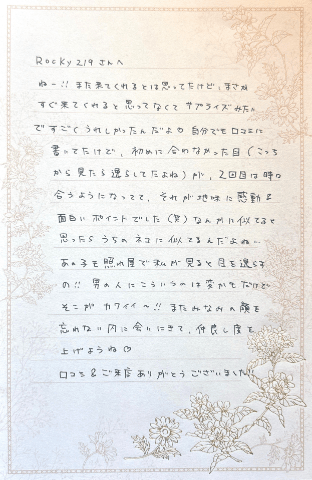 Rocky219さんへ
ねー!! また来てくれるとは思ってたけど、まさか
すぐ来てくれると思ってなくてサプライズみたい
ですごくうれしかったんだよ♡ 自分でも口コミに
書ってたけど、初めに合わなかった目(こっち
から見たら逸らしてたよね)が、2回目は時々
合うようになってて、それが地味に感動&
面白いポイントでした(笑) なんかに似てると
思ったらうちのネコに似てるんだよね〜
あの子も照れ屋で私が見ると目を逸らす
の!! 男の人にこういうのは変かもだけど
そこがカワイイ〜!! またみなみの顔を
忘れない内に会いにきて、仲良し度を
上げようね♡
口コミ&ご来店ありがとうございました